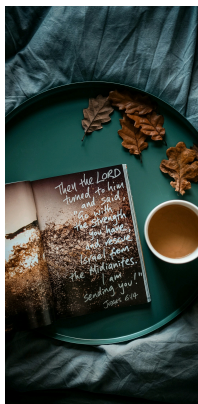 Then the LORD
turned to him
and said,
"Go with
the strength
you have,
and rescue
Israel from
the Midianites.
I am
sending you!"
Judges 6:14